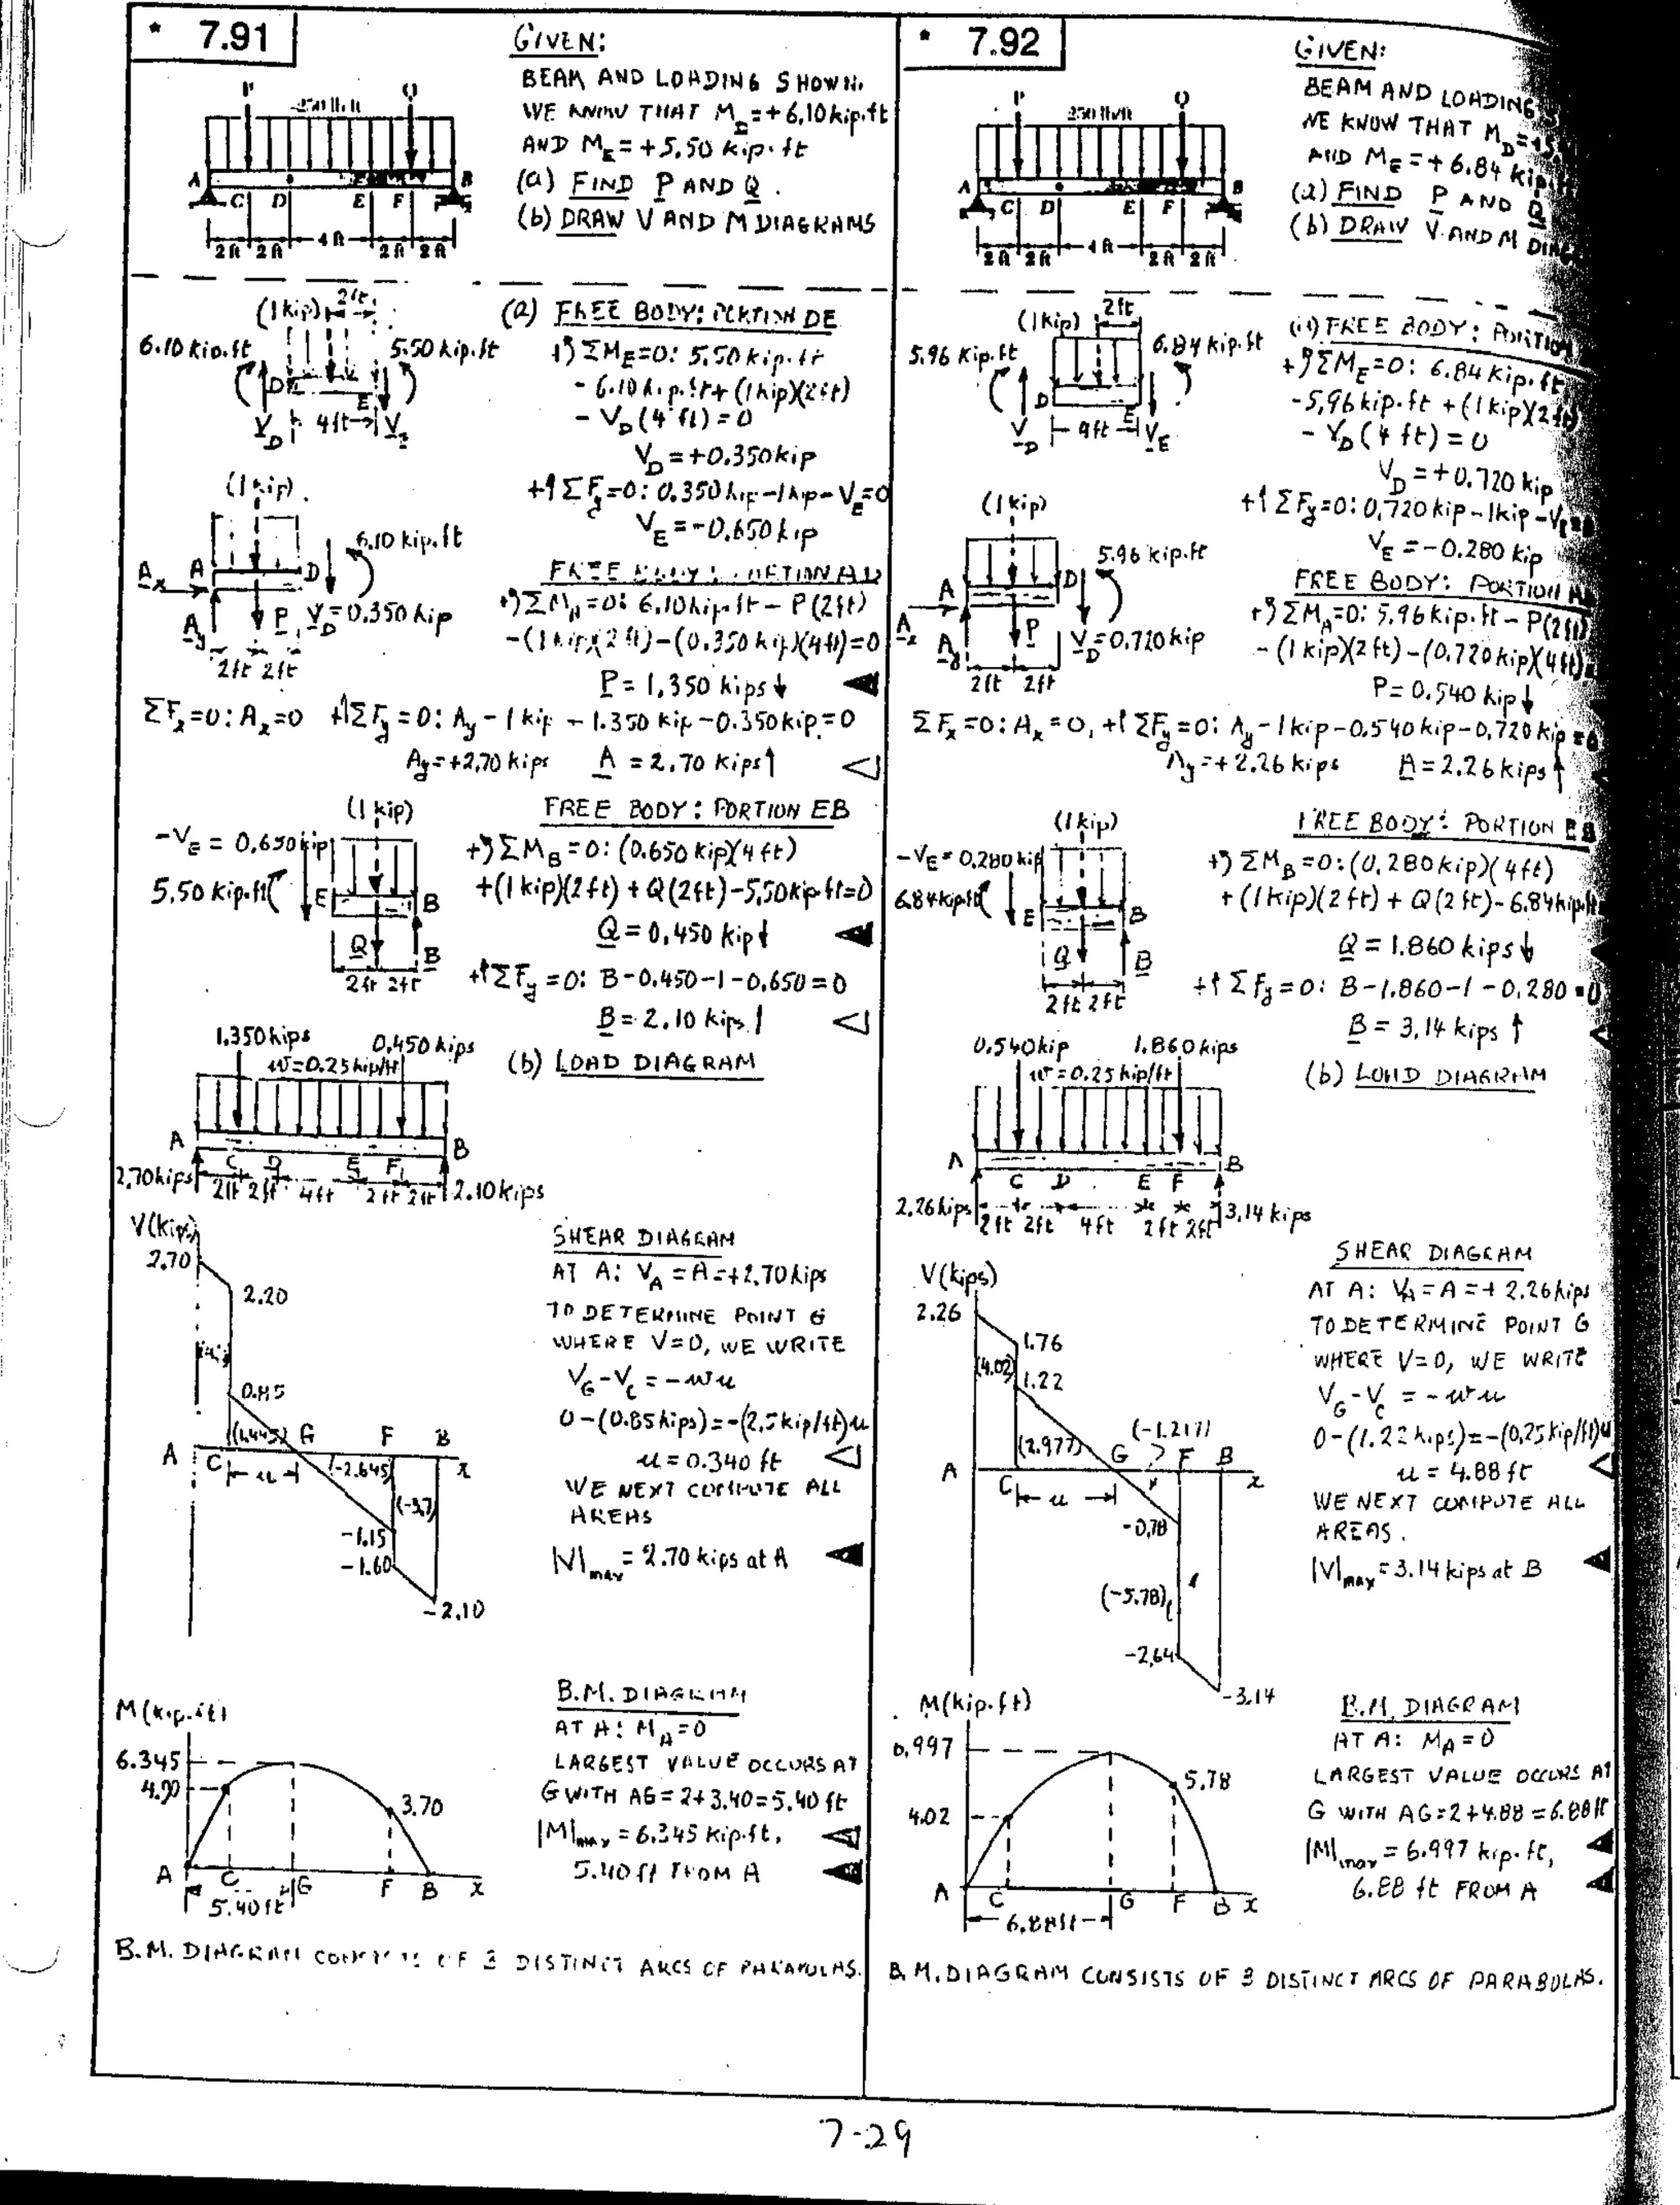 * 7.91
GIVEN:
BEAM AND LOADING SHOWN.
WE KNOW THAT M_D = +6.10 kip.ft
AND M_E = +5.50 kip.ft
(a) FIND P AND Q.
(b) DRAW V AND M DIAGRAMS
P 250 lb/ft Q
A C D E F B
2 ft 2 ft 4 ft 2 ft 2 ft
(a) FREE BODY: PORTION DE
(1 kip) 2ft
6.10 kip.ft 5.50 kip.ft
D E
V_D 4ft
+↰ΣM_E=0: 5.50 kip.ft
- 6.10 kip.ft + (1 kip)(2ft)
- V_D(4 ft) = 0
V_D = +0.350 kip
+↑ΣF_y=0: 0.350 kip-1kip-V_E=0
V_E = -0.650 kip
(1 kip)
6.10 kip.ft
A_x A D
A_y P V_D=0.350 kip
2ft 2ft
FREE BODY: PORTION AD
+↰ΣM_A=0: 6.10 kip.ft - P(2ft)
-(1 kip)(2 ft)-(0.350 kip)(4ft)=0
P = 1,350 kips↓
ΣF_x=0: A_x=0 +↑ΣF_y=0: A_y - 1 kip - 1.350 kip - 0.350kip=0
A_y=+2.70 kips A = 2.70 kips↑
FREE BODY: PORTION EB
(1 kip)
-V_E = 0.650 kip
5.50 kip.ft E B
Q B
2ft 2ft
+↰ΣM_B=0: (0.650 kip)(4ft)
+(1kip)(2ft)+Q(2ft)-5.50kip.ft=0
Q = 0.450 kip↓
+↑ΣF_y=0: B-0.450-1-0.650=0
B = 2.10 kips↑
(b) LOAD DIAGRAM
1.350kips 0.450 kips
w=0.25 kip/ft
A B
C D E F
2.70kips 2ft 2ft 4ft 2ft 2ft 2.10 kips
V(kips)
2.70
2.20
0.85
(1.445) G F B
A C u x
(-2.645)
(-3.7)
-1.15
-1.60
-2.10
SHEAR DIAGRAM
AT A: V_A = A = +2.70 kips
TO DETERMINE POINT G
WHERE V=0, WE WRITE
V_G-V_C = -wu
0-(0.85 kips)=-(2.5kip/ft)u
u = 0.340 ft
WE NEXT COMPUTE ALL
AREAS
|V|max = 2.70 kips at A
M(kip.ft)
6.345
4.90
3.70
A C G F B x
5.40 ft
B.M. DIAGRAM
AT A: M_A=0
LARGEST VALUE OCCURS AT
G WITH AG = 2+3.40=5.40 ft
|M|max = 6.345 kip.ft,
5.40 ft FROM A
B.M. DIAGRAM CONSISTS OF 3 DISTINCT ARCS OF PARABOLAS.
* 7.92
GIVEN:
BEAM AND LOADING
WE KNOW THAT M_D=+5.
AND M_E = +6.84 kip
(a) FIND P AND Q
(b) DRAW V AND M
P 250 lb/ft Q
A C D E F B
2 ft 2 ft 4 ft 2 ft 2 ft
FREE BODY: PORTION
(1kip) 2ft
5.96 kip.ft 6.84 kip.ft
D E
V_D 4ft V_E
+↰ΣM_E=0: 6.84 kip.ft
-5.96kip.ft +(1kip)(2ft)
- V_D(4 ft)=0
V_D = +0.720 kip
+↑ΣF_y=0: 0.720 kip-1kip-V_E=0
V_E = -0.280 kip
(1 kip)
5.96 kip.ft
A D
A_x A_y P V_D=0.720 kip
2ft 2ft
FREE BODY: PORTION A
+↰ΣM_A=0: 5.96 kip.ft - P(2ft)
-(1kip)(2ft)-(0.720kip)(4ft)=
P = 0.540 kip↓
ΣF_x=0: A_x=0, +↑ΣF_y=0: A_y-1kip-0.540kip-0.720kip=0
A_y=+2.26 kips A=2.26 kips↑
FREE BODY: PORTION EB
(1kip)
-V_E=0.280 kip
6.84 kip.ft E B
Q B
2ft 2ft
+↰ΣM_B=0: (0.280kip)(4ft)
+(1kip)(2ft)+Q(2ft)-6.84kip.ft
Q = 1.860 kips↓
+↑ΣF_y=0: B-1.860-1-0.280=0
B = 3.14 kips↑
(b) LOAD DIAGRAM
0.540kip 1.860kips
w=0.25 kip/ft
A B
C D E F
2.26kips 2ft 2ft 4ft 2ft 2ft 3.14 kips
V(kips)
2.26
1.76
(4.02)
1.22
(2.977) (-1.217)
G F B
A C u x
-0.78
(-5.78)
-2.64
-3.14
SHEAR DIAGRAM
AT A: V_A=A=+2.26kips
TO DETERMINE POINT G
WHERE V=0, WE WRITE
V_G-V_C = -wu
0-(1.22 kips)=-(0.25kip/ft)u
u = 4.88 ft
WE NEXT COMPUTE ALL
AREAS.
|V|max = 3.14 kips at B
M(kip.ft)
6.997
5.78
4.02
A C G F B x
6.88ft
B.M. DIAGRAM
AT A: M_A=0
LARGEST VALUE OCCURS AT
G WITH AG=2+4.88=6.88ft
|M|max = 6.997 kip.ft,
6.88 ft FROM A
B.M. DIAGRAM CONSISTS OF 3 DISTINCT ARCS OF PARABOLAS.
7-29